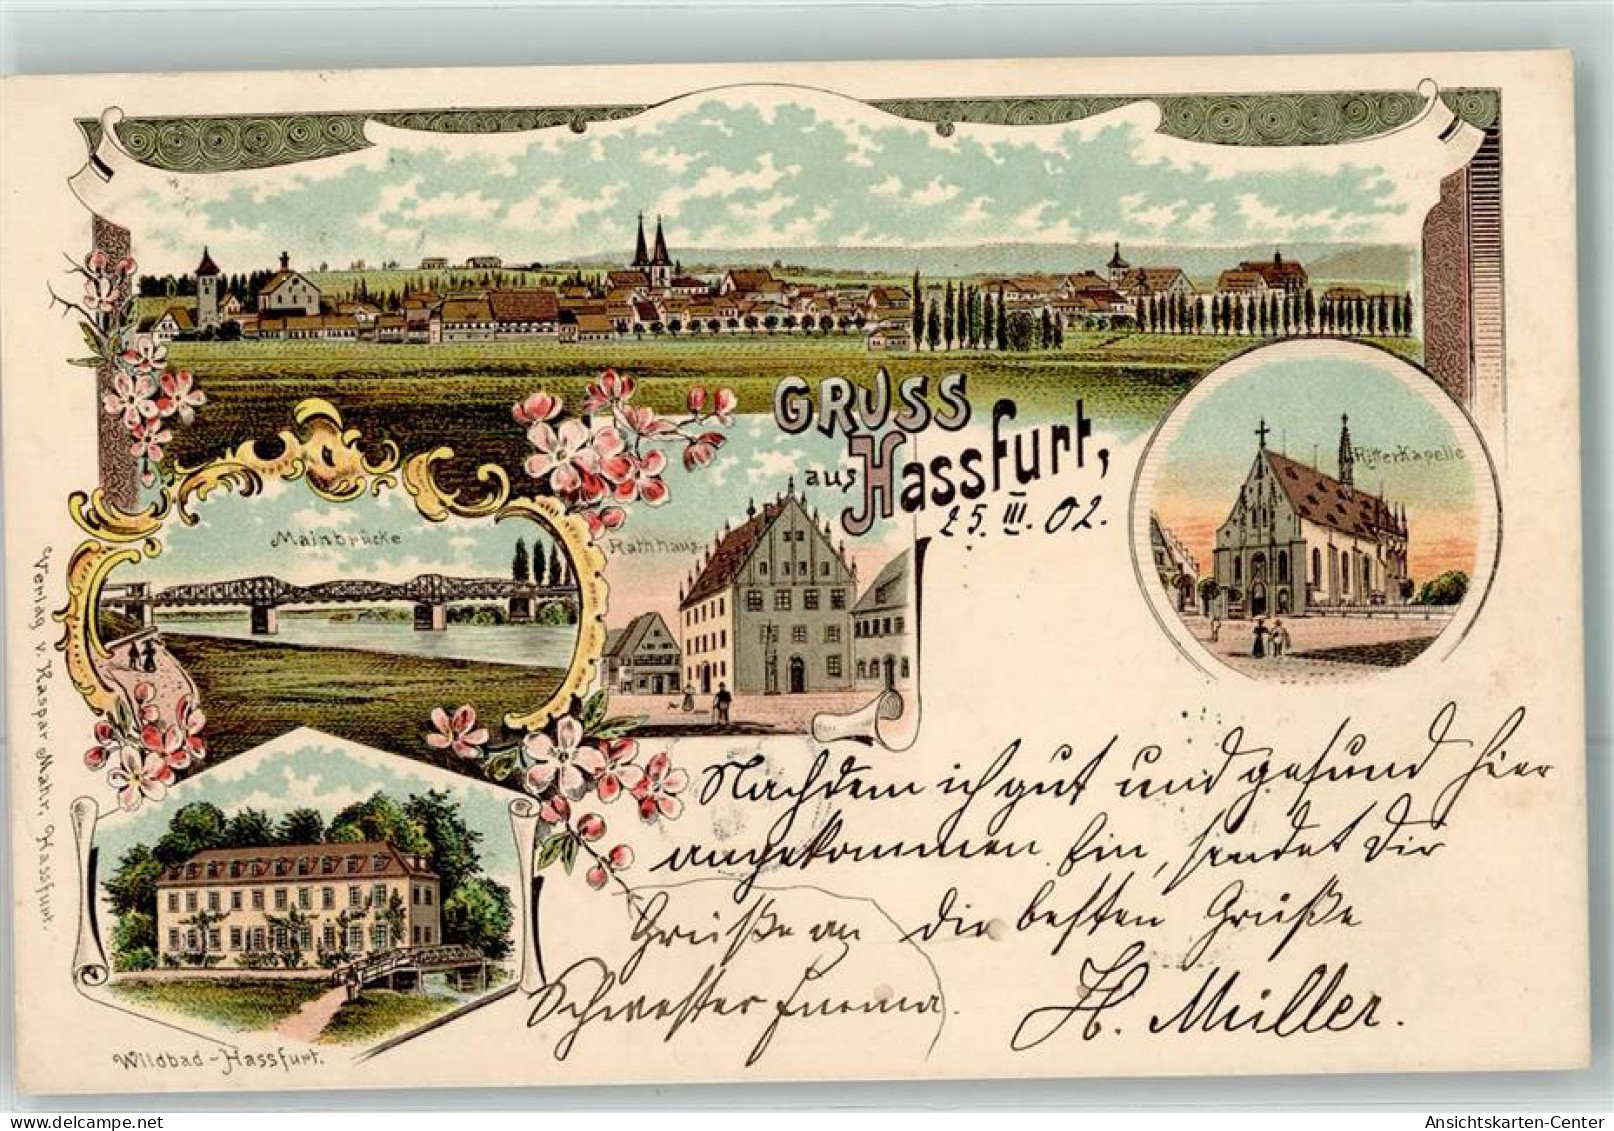 GRUSS
aus Hassfurt,
25. III. 02.
RitterKapelle
Mainbrücke
Rathhaus
Verlag v. Kaspar Mahr, Hassfurt.
Nachdem ich gut und gesund hier
angekommen bin, sendet Dir
die besten Grüße
H. Müller.
Grüße an
Schwester Emma.
Wildbad-Hassfurt.
Ansichtskarten-Center